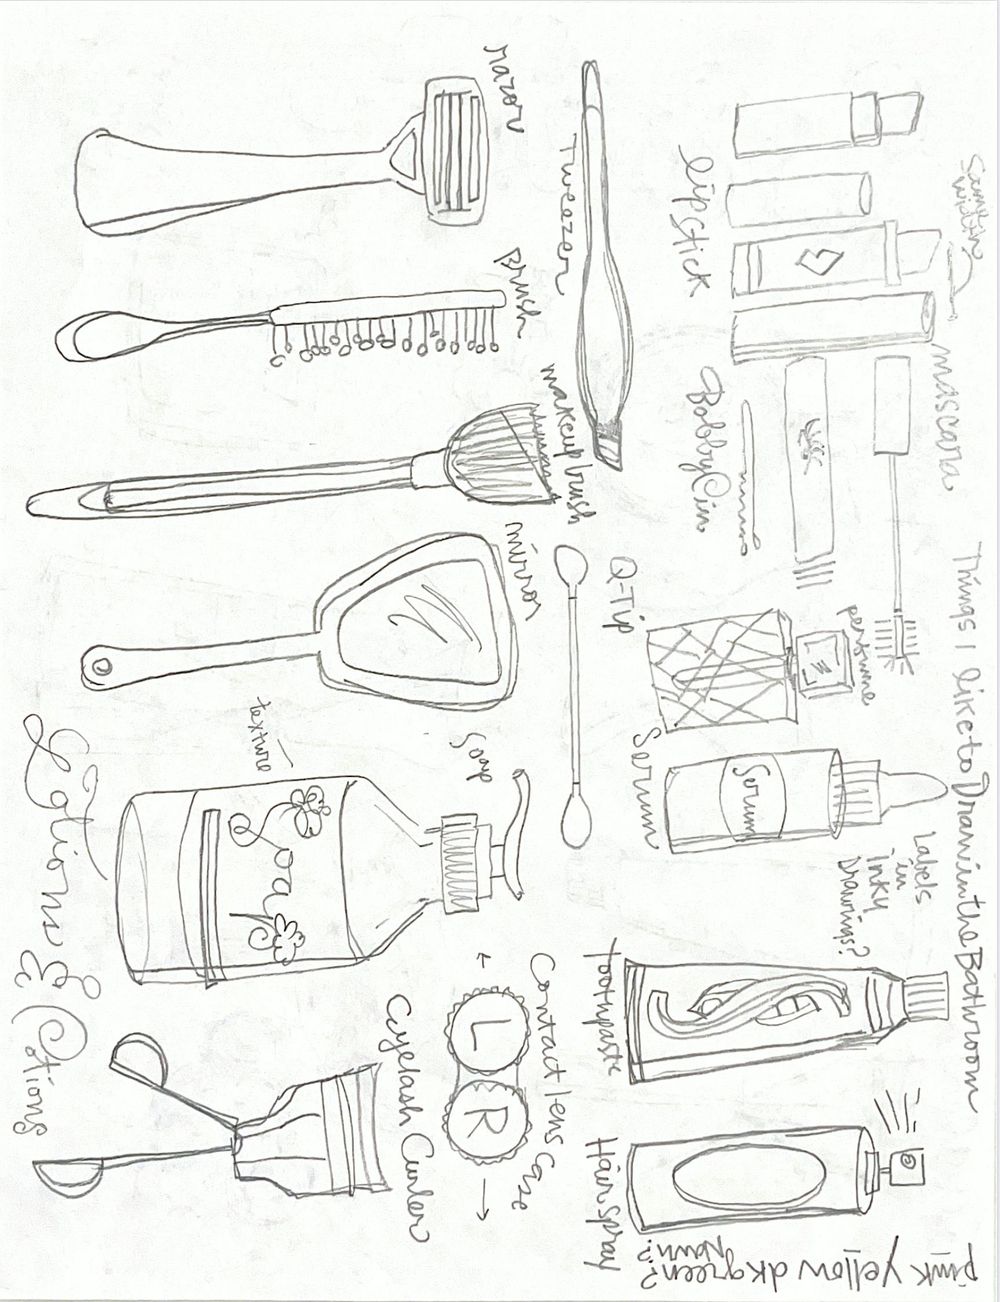 Things I like to Draw in the Bathroom
Something
width
lipstick
mascara
Tweezer
Bobby Pin
razor
Brush
makeup brush
mirror
Q-Tip
perfume
Serum
Serum
Labels
in
inky
Drawings?
toothpaste
Hairspray
Contact lens Case
←
L
R
→
Soap
texture
Soap
Eyelash Curler
Lotions & Potions
pink yellow dk green?